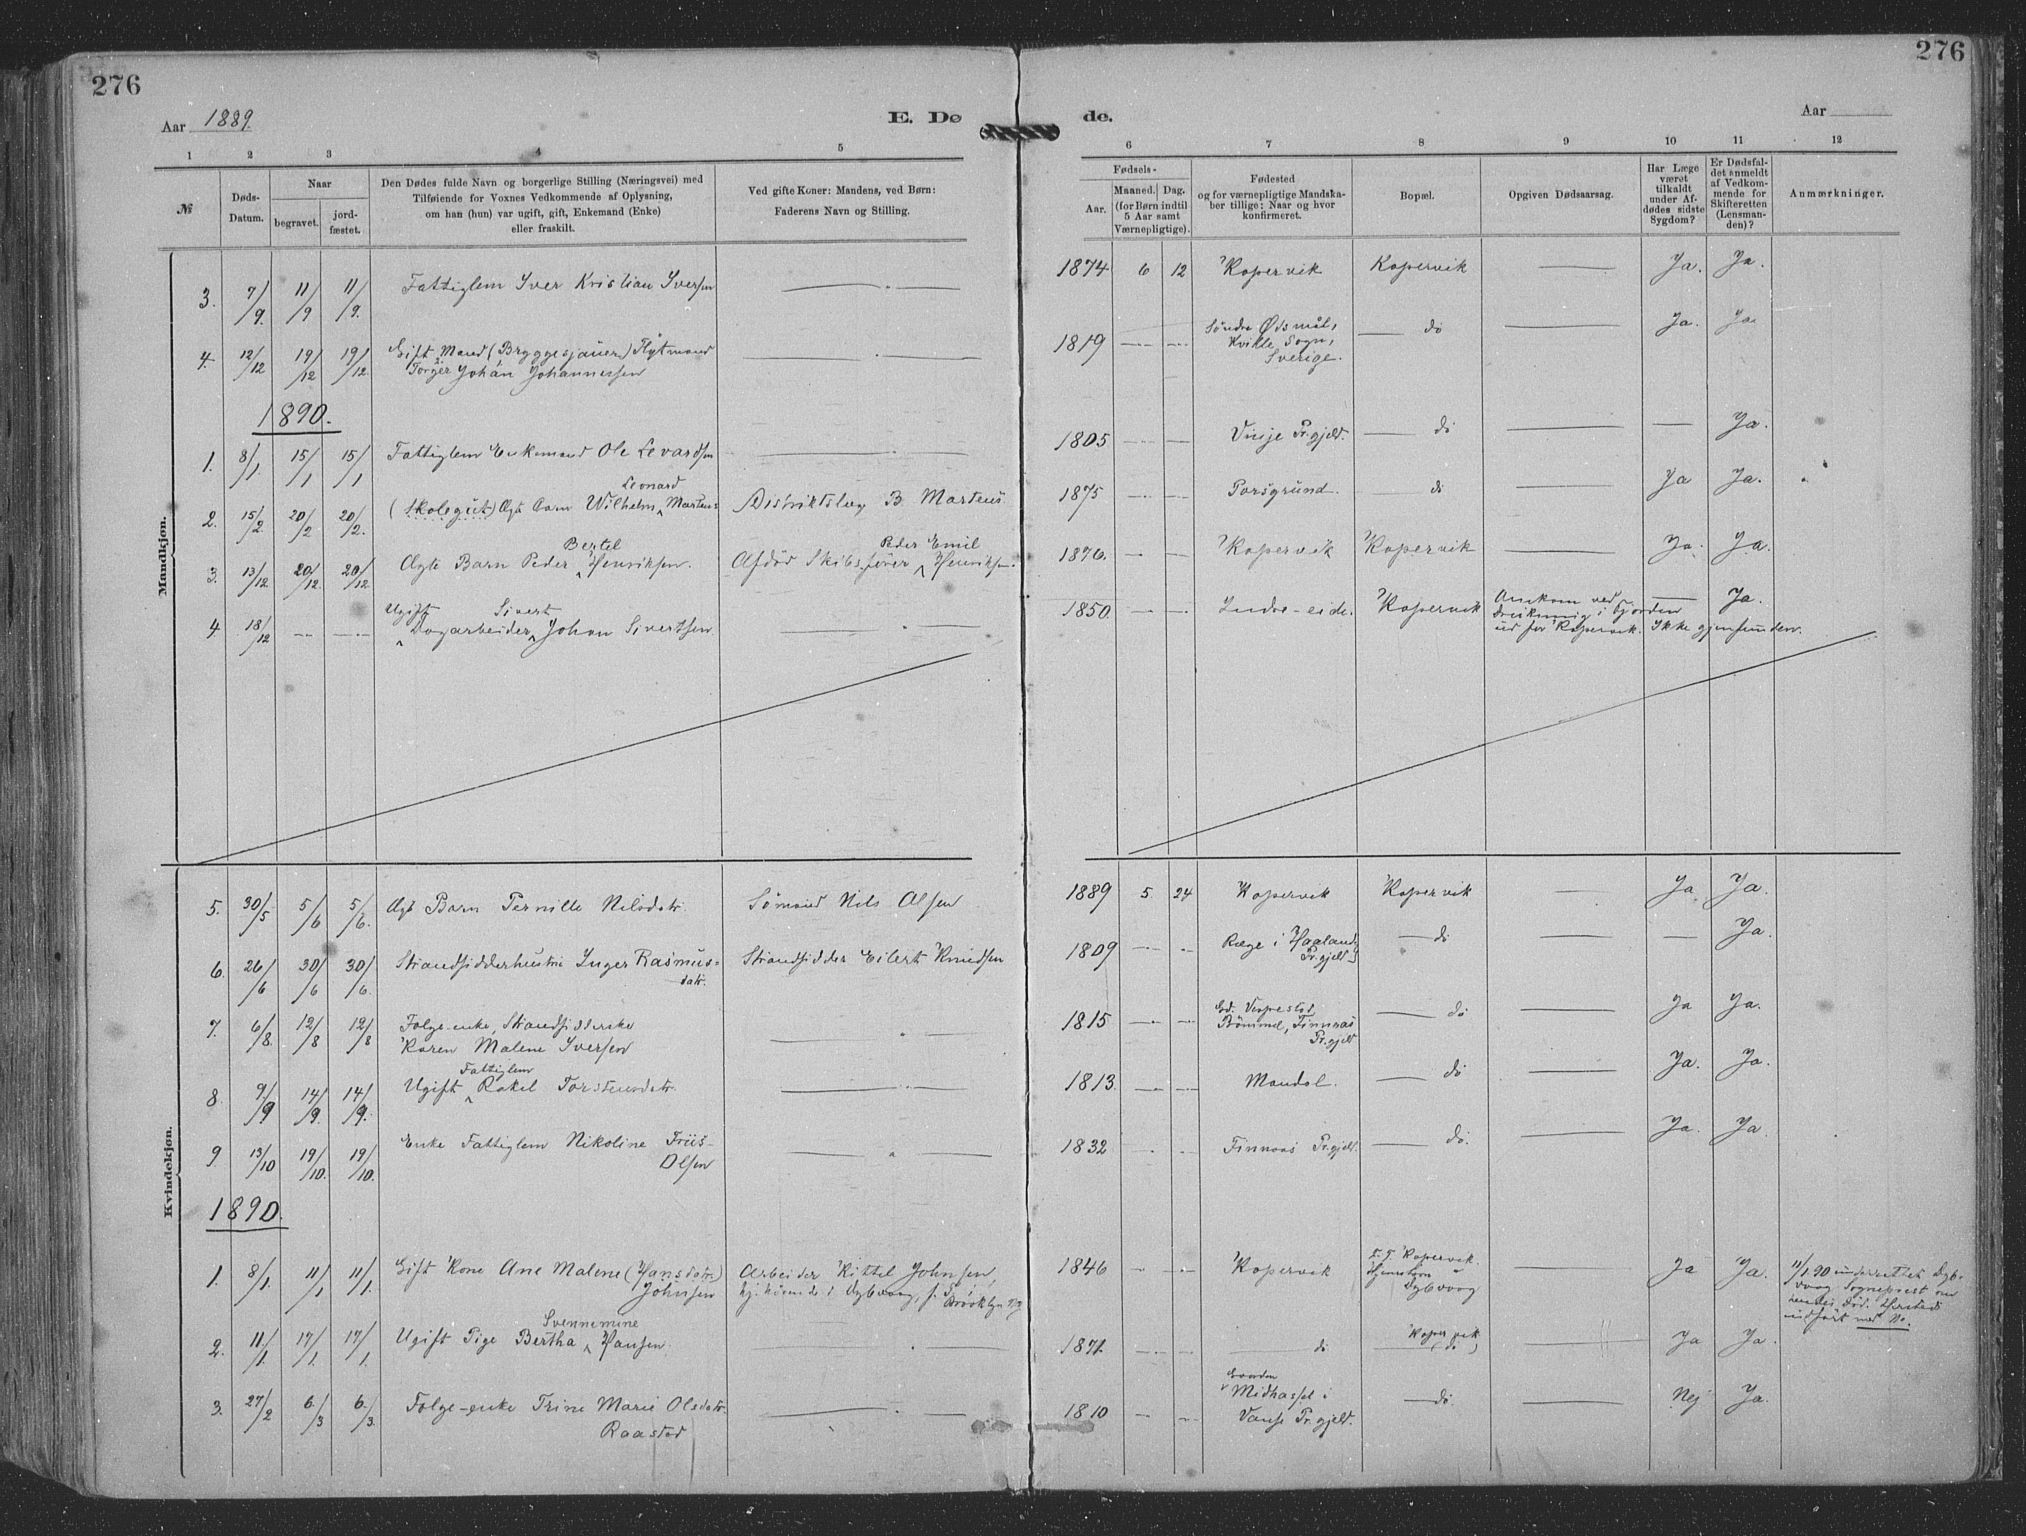 276
276
Aar 1889.
E. Døde.
Aar
1
2
3
4
5
6
7
8
9
10
11
12
№
Døds-Datum.
Naar
begravet.
jord-fæstet.
Den Dødes fulde Navn og borgerlige Stilling (Næringsvei) med
Tilføiende for Voxnes Vedkommende af Oplysning,
om han (hun) var ugift, gift, Enkemand (Enke)
eller fraskilt.
Ved gifte Koner: Mandens, ved Børn:
Faderens Navn og Stilling.
Fødsels-
Aar.
Maaned. Dag.
(for Børn indtil
5 Aar samt
Værnepligtige).
Fødested
og for værnepligtige Mandska-
ber tillige: Naar og hvor
konfirmeret.
Bopæl.
Opgiven Dødsaarsag.
Har Læge
været
tilkaldt
under Af-
dødes sidste
Sygdom?
Er Dødsfal-
det anmeldt
af Vedkom-
mende for
Skifteretten
(Lensman-
den)?
Anmærkninger.
Mandkjøn.
3. 7/9. 11/9 11/9. Fattiglem Iver Kristian Iversen — 1874 6 12 Kopervik Kopervik — Ja. Ja.
4. 12/12 19/12 19/12. Gift Mand (Bryggesjauer) Flytmand
Torger Johan Johannessen — 1819 — — Søndre Ødsmål,
Kville Sogn,
Sverige. — do — Ja. Ja
1890.
1. 8/1. 15/1 15/1 Fattiglem Enkemand Ole Levardsen — 1805 — — Vinje Pr.gjeld. — do — — Ja.
2. 15/2. 20/2 20/2. (Skolegut) Ægte Barn Wilhelm Leonard Martens Distriktslæge B. Martens. 1875 — — Porsgrund. — do — Ja Ja.
3. 13/12. 20/12. 20/12. Ægte Barn Peder Bertel Henriksen. Afdød Skibsfører Peder Emil Henriksen. 1876. — — Kopervik Kopervik — Ja. Ja.
4 18/12 — — Ugift Dagarbeider Sivert Johan Sivertsen — 1850. — — Indre-eide. Kopervik Omkom ved
drukning i Fjorden
ud for Kopervik. Ikke gjenfunden. — Ja.
Kvindekjøn.
5. 30/5 5/6 5/6. Ægte Barn Pernille Nilsdatr. Sømand Nils Olsen 1889 5. 24 Kopervik Kopervik — Ja Ja.
6. 26/6 30/6 30/6. Strandsidderhustru Inger Rasmus-
datr. Strandsidder Eilert Knudsen 1809 — — Ræge i Haaland
Pr.gjeld — do — — Ja.
7. 6/8 12/8 12/8 Folge-enke, Strandsidderske
Karen Malene Iversen — 1815 — — Gd. Vespestad,
Bømmel, Finnaas
Pr.gjeld — do — Ja Ja.
8. 9/9 14/9. 14/9. Ugift Fattiglem Rakel Torstensdatr. — 1813. — — Mandal. — do — Ja. Ja.
9 13/10 19/10. 19/10. Enke Fattiglem Nikoline Friis-
Olsen — 1832 — — Finnaas Pr.gjeld. — do. — Ja. Ja.
1890.
1. 8/1. 11/1 11/1. Gift Kone Ane Malene (Hansdatr.)
Johnsen Arbeider Kittel Johnsen,
hj.hørende i Dybvaag, f. i
Brooklyn 1846 — — Kopervik Kopervik.
Hjemstavn
Dybvaag — Ja Ja. 11/1 90 underrettet Dyb-
vaag Sogneprest om
hendes Død. Herstedes
indført med No.
2. 11/1. 17/1. 17/1. Ugift Pige Bertha Svennemine Hansen. — 1871. — — do Kopervik
(do) — Ja Ja.
3. 27/2 6/3 6/3. Folge-enke Trine Marie Olsdatr.
Raastad — 1810 — — Midhassel i
Vanse Pr.gjeld. — do. — Nej Ja.